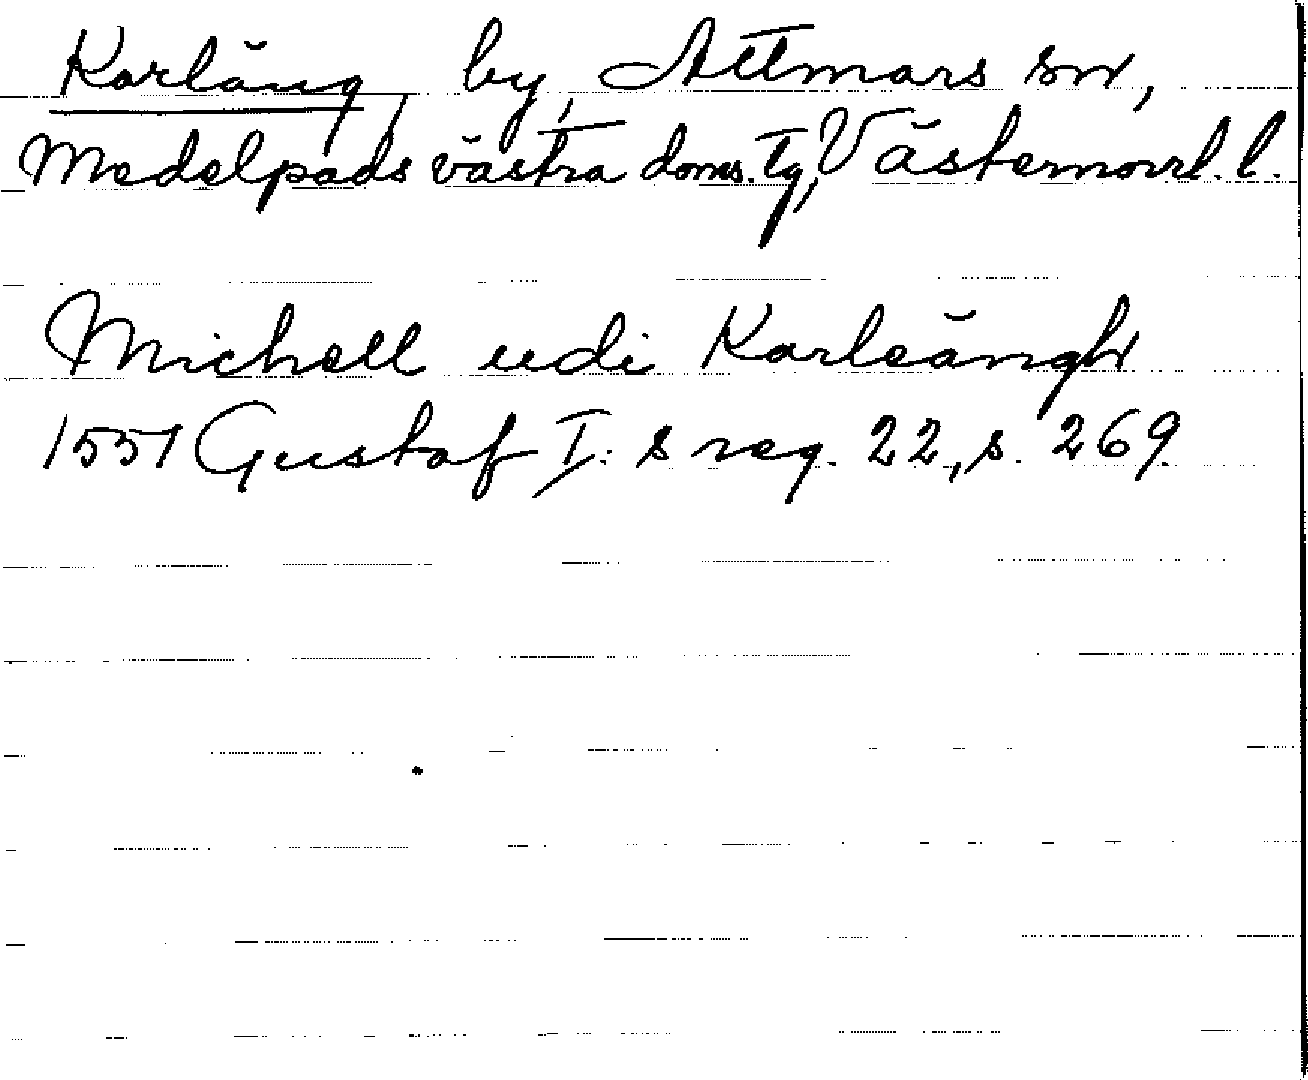 Karläng, by, Attmars sn,
Medelpads västra doms. tg, Västernorrl. l.
Michell udi Karleängh
1551 Gustaf I:s reg. 22, s. 269.